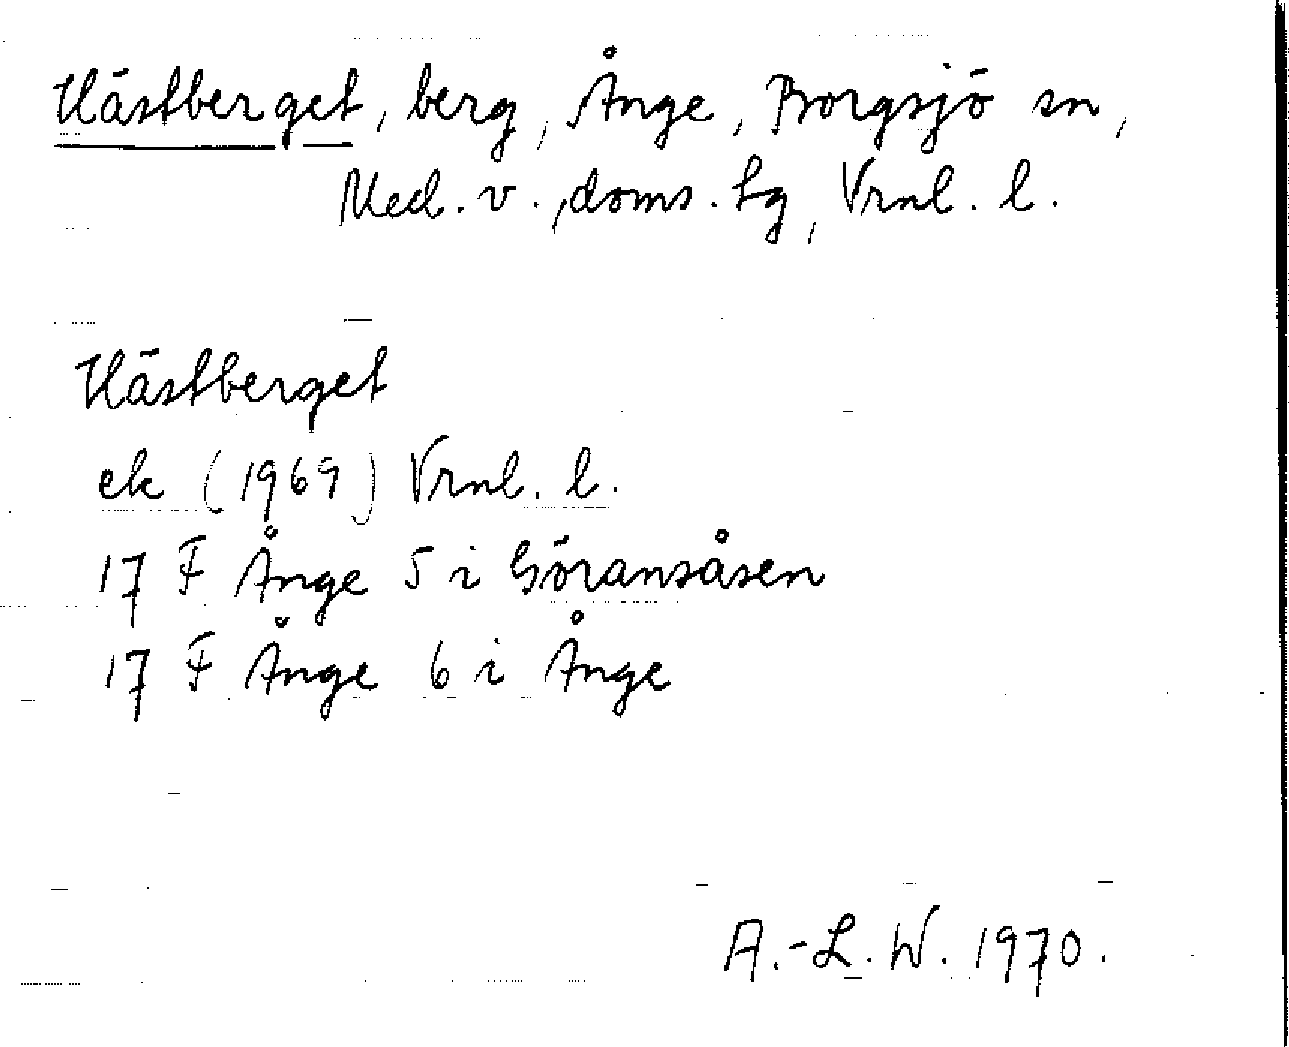 Hästberget, berg, Ånge, Borgsjö sn,
Med. v., doms. hg, Vrnl. l.
Hästberget
ek (1969) Vrnl. l.
17 F Ånge 5 i Göransåsen
17 F Ånge 6 i Ånge
A.-L. W. 1970.